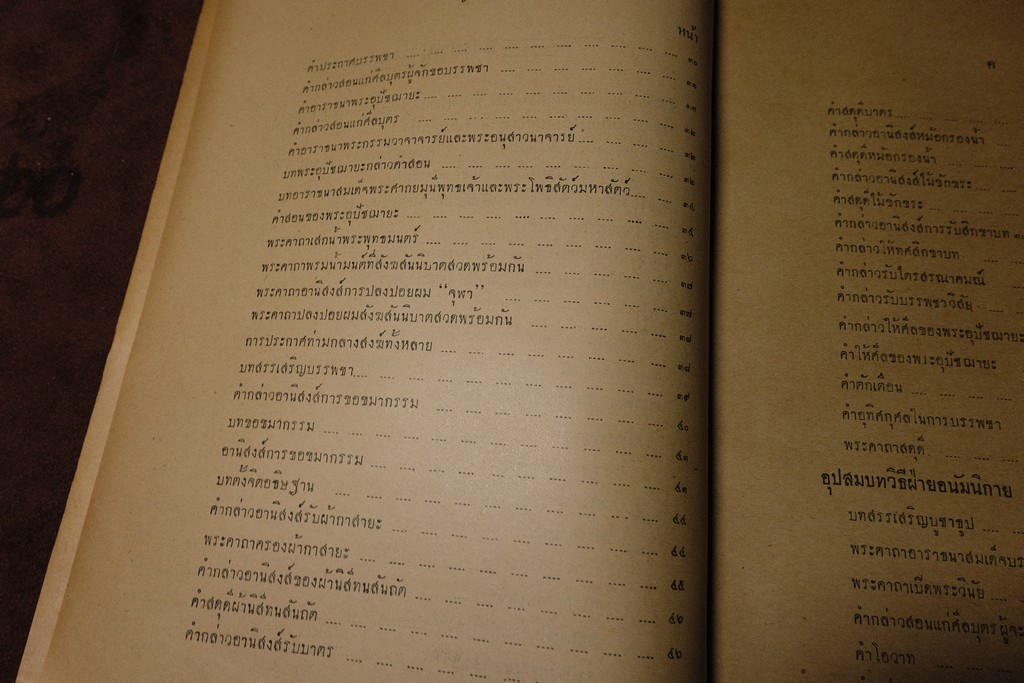 หน้า
คำประกาศบรรพชา .... .... .... .... .... .... .... .... ๓๐
คำกล่าวสอนแก่ศีลบุตรผู้จักขอบรรพชา .... .... .... .... .... .... ๓๑
คำอาราธนาพระอุปัชฌายะ .... .... .... .... .... .... .... ๓๑
คำกล่าวสอนแก่ศีลบุตร .... .... .... .... .... .... .... ๓๒
คำอาราธนาพระกรรมวาจาจารย์และพระอนุสาวนาจารย์ .... .... .... ๓๒
บทพระอุปัชฌายะกล่าวคำสอน .... .... .... .... .... .... ๓๒
บทอาราธนาสมเด็จพระศากยมุนีพุทธเจ้าและพระโพธิสัตว์มหาสัตว์.... ๓๔
คำสอนของพระอุปัชฌายะ .... .... .... .... .... .... .... ๓๕
พระคาถาเสกน้ำพระพุทธมนตร์ .... .... .... .... .... .... ๓๖
พระคาถาพรมน้ำมนต์ที่สังฆสันนิบาตสวดพร้อมกัน .... .... .... .... ๓๗
พระคาถาอานิสงส์การปลงปอยผม “จุฬา” .... .... .... .... .... ๓๗
พระคาถาปลงปอยผมสังฆสันนิบาตสวดพร้อมกัน .... .... .... .... ๓๘
การประกาศท่ามกลางสงฆ์ทั้งหลาย .... .... .... .... .... .... ๓๘
บทสรรเสริญบรรพชา.... .... .... .... .... .... .... .... ๓๙
คำกล่าวอานิสงส์การขอขมากรรม .... .... .... .... .... .... ๔๐
บทขอขมากรรม .... .... .... .... .... .... .... .... ๔๑
อานิสงส์การขอขมากรรม .... .... .... .... .... .... .... ๔๑
บทตั้งจิตอธิษฐาน .... .... .... .... .... .... .... .... ๔๔
คำกล่าวอานิสงส์รับผ้ากาสายะ .... .... .... .... .... .... ๔๔
พระคาถาครองผ้ากาสายะ .... .... .... .... .... .... .... ๔๕
คำกล่าวอานิสงส์ของผ้านิสีทนสันถัต .... .... .... .... .... .... ๔๖
คำสดุดีผ้านิสีทนสันถัต .... .... .... .... .... .... .... ๔๖
คำกล่าวอานิสงส์รับบาตร .... .... .... .... .... ....
ค
คำสดุดีบาตร .... ....
คำกล่าวอานิสงส์หม้อกรองน้ำ
คำสดุดีหม้อกรองน้ำ ....
คำกล่าวอานิสงส์ไม้ชักขระ ....
คำสดุดีไม้ชักขระ .... ....
คำกล่าวอานิสงส์การรับสิกขาบท
คำกล่าวให้ทศสิกขาบท ....
คำกล่าวรับไตรสรณาคมณ์
คำกล่าวรับบรรพชาวิสัย ....
คำกล่าวให้ศีลของพระอุปัชฌายะ
คำให้ศีลของพระอุปัชฌายะ
คำตักเตือน .... ....
คำอุทิศกุศลในการบรรพชา
พระคาถาสดุดี ....
อุปสมบทวิธีฝ่ายอนัมนิกาย
บทสรรเสริญบูชาธูป ....
พระคาถาอาราธนาสมเด็จบร
พระคาถาเปิดพระวินัย ....
คำกล่าวสอนแก่ศีลบุตรผู้จะ
คำโอวาท .... ....